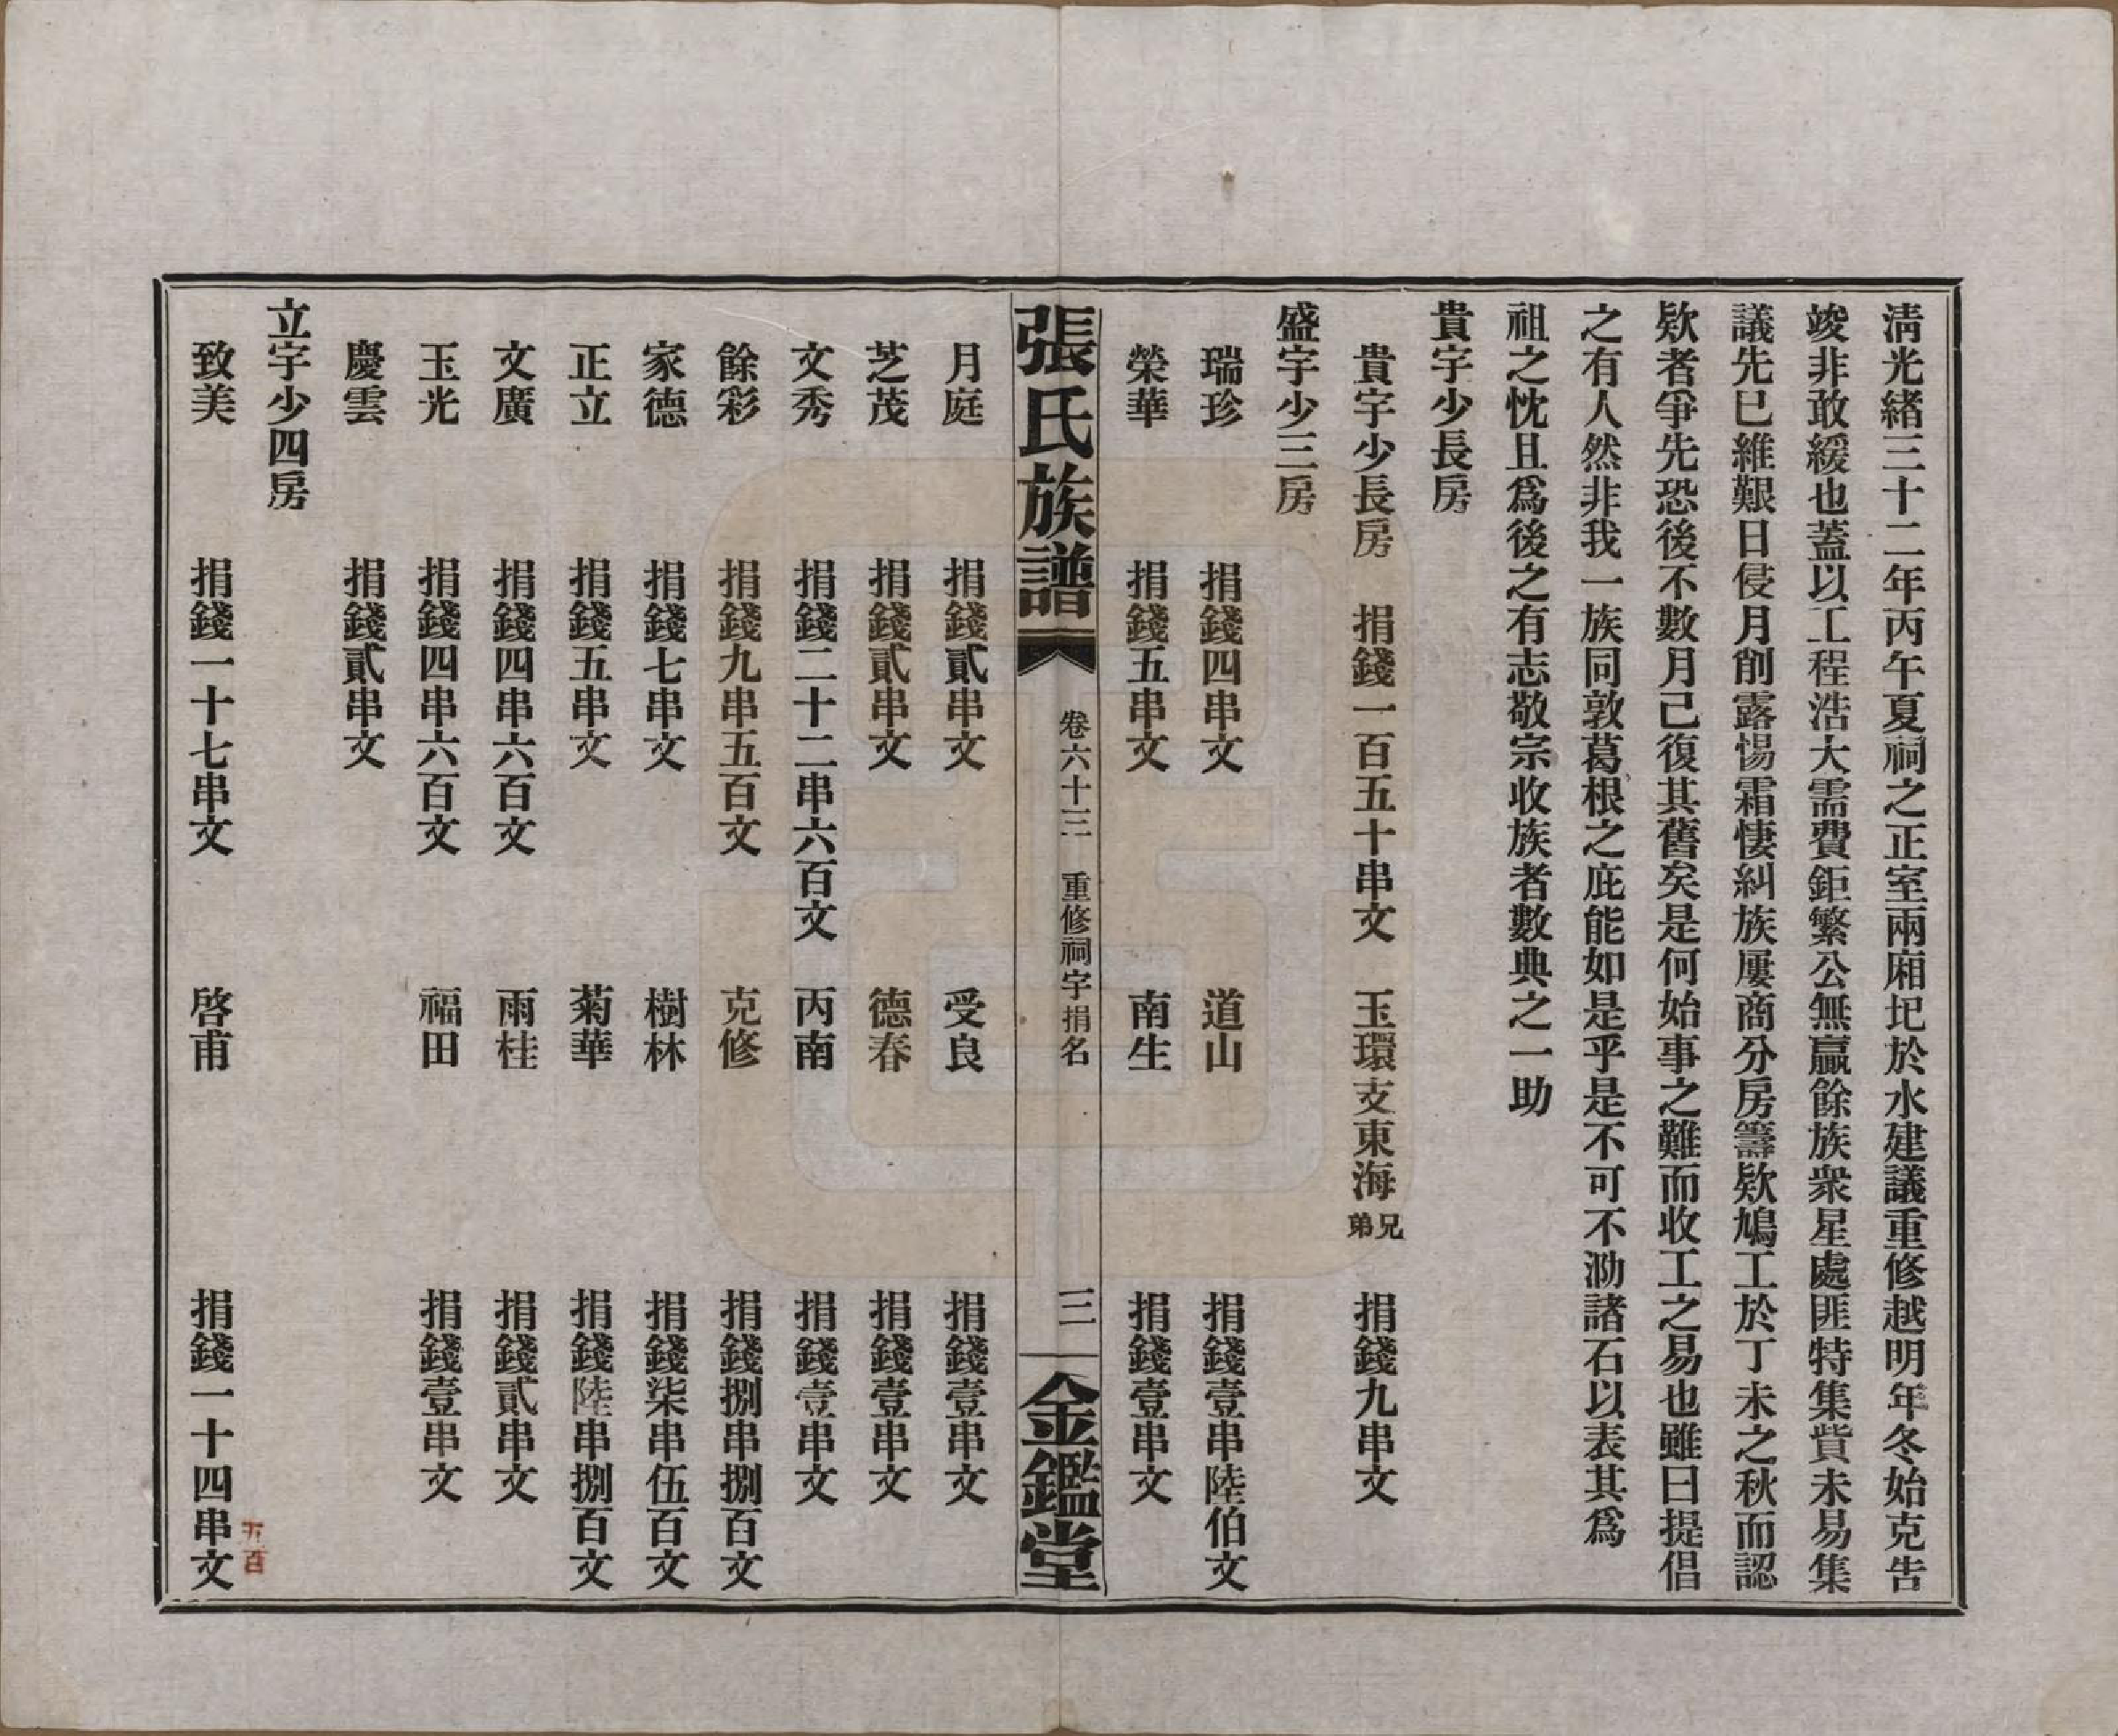 清光緒三十二年丙午夏祠之正室兩廂圯於水建議重修越明年冬始克告
竣非敢緩也蓋以工程浩大需費鉅繁公無贏餘族衆星處匪特集貲未易集
議先已維艱日侵月削露惕霜悽糾族屢商分房籌欵鳩工於丁未之秋而認
欵者爭先恐後不數月己復其舊矣是何始事之難而收工之易也雖曰提倡
之有人然非我一族同敦葛根之庇能如是乎是不可不泐諸石以表其爲
祖之忱且爲後之有志敬宗收族者數典之一助
貴宇少長房
貴宇少長房 捐錢一百五十串文 玉環支東海兄弟 捐錢九串文
盛宇少三房
瑞珍 捐錢四串文 道山 捐錢壹串陸伯文
榮華 捐錢五串文 南生 捐錢壹串文
張氏族譜 卷六十三 重修祠宇捐名 三 金鑑堂
月庭 捐錢貳串文 受良 捐錢壹串文
芝茂 捐錢貳串文 德春 捐錢壹串文
文秀 捐錢二十二串六百文 丙南 捐錢壹串文
餘彩 捐錢九串五百文 克修 捐錢捌串捌百文
家德 捐錢七串文 樹林 捐錢柒串伍百文
正立 捐錢五串文 菊華 捐錢陸串捌百文
文廣 捐錢四串六百文 雨桂 捐錢貳串文
玉光 捐錢四串六百文 福田 捐錢壹串文
慶雲 捐錢貳串文
立宇少四房
致美 捐錢一十七串文 啓甫 捐錢一十四串文